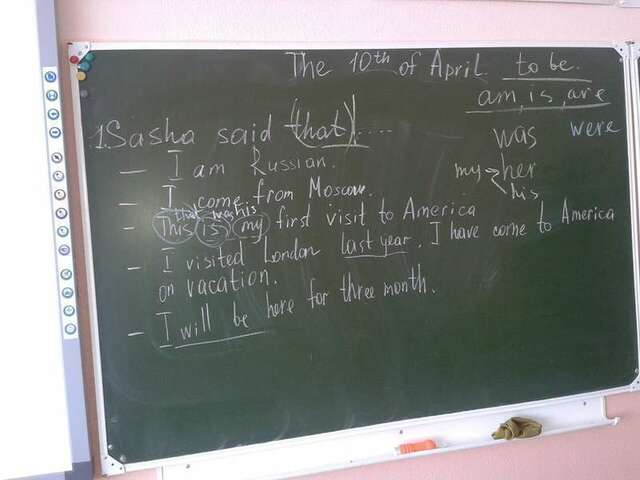 The 10th of April. to be.
am, is, are
1. Sasha said (that)....
was were
— I am Russian.
my < her
his
— I come from Moscow.
that was his
- This is my first visit to America
- I visited London last year. I have come to America
on vacation.
- I will be here for three month.